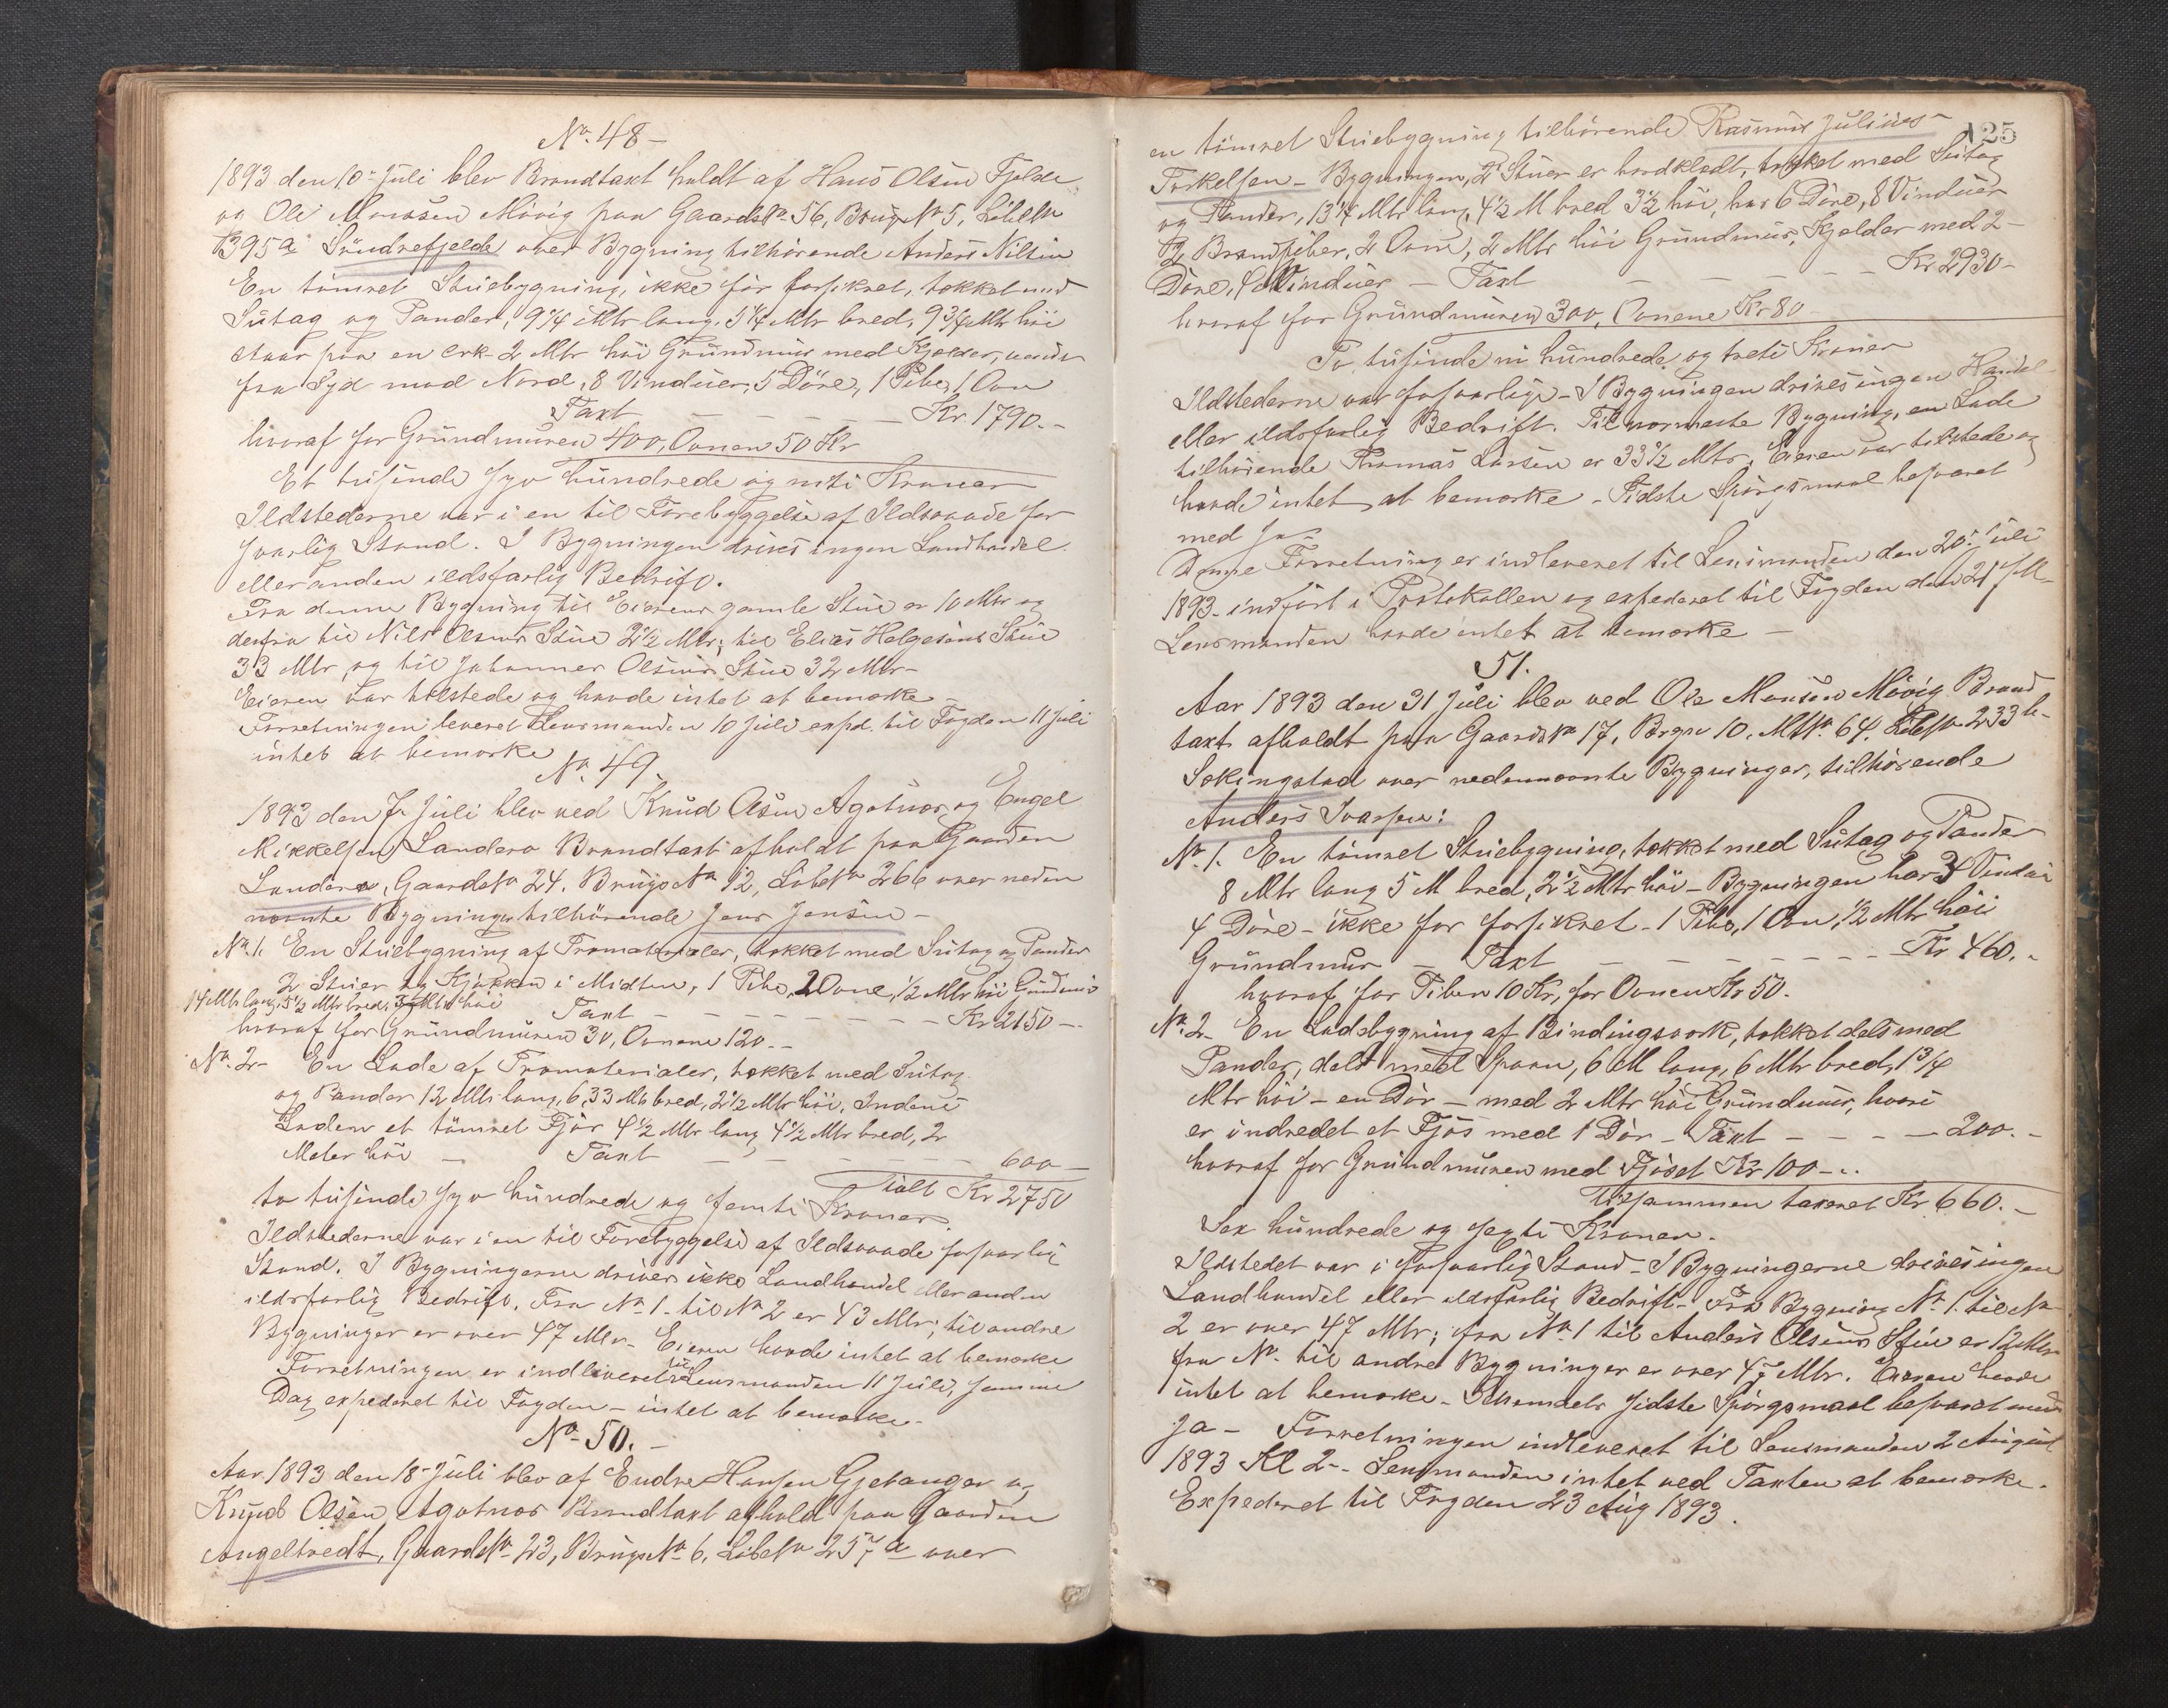 No. 48 -
1893 den 10de Juli blev Brandtaxt holdt af Hans Olsen Fjelde
og Ole Monsen Mövig paa Gaards No 56, Brugs No 5, Löbe No
395a Söndrefjelde over Bygning tilhörende Anders Nilsen
En tömret Stuebygning, ikke för forsikret, tækket med
Sutag og Pander, 9 1/4 Mtr lang, 5 1/4 Mtr bred, 9 3/4 Mtr höi
staar paa en cirk 2 Mtr höi Grundmur med Kjelder, vender
fra Syd mod Nord, 8 Vinduer, 5 Döre, 1 Pibe, 1 Ovn
Taxt - - - - - - Kr 1790.-
hvoraf for Grundmuren 400, Ovnen 50 Kr
Et tusinde syv hundrede og niti Kroner
Ildstederne var i en til Forebyggelse af Ildsvaade for
svarlig Stand. I Bygningen drives ingen Landhandel
eller anden ildsfarlig Bedrift.
Fra denne Bygning til Eierens gamle Stue er 10 Mtr og
derfra til Nils Olsens Stue 2 1/2 Mtr; til Elias Helgesens Stue
33 Mtr, og til Johannes Olsens Stue 32 Mtr -
Eieren var tilstede og havde intet at bemærke -
Forretningen leveret Lensmanden 10 Juli exped. til Fogden 11 Juli
intet at bemærke
No. 49.
1893 den 7. Juli blev ved Knud Olsen Agotnes og Engel
Mikkelsen Landero Brandtaxt afholdt paa Gaarden
Landero, Gaards No 24. Brugs No 12, Löbe No 266 over neden
nævnte Bygninger tilhörende Jens Jensen -
No. 1. En Stuebygning af Træmaterialer, tækket med Sutag og Pander
2 Stuer og Kjökken i Midten, 1 Pibe, 2 Ovne, 1/2 Mtr höi Grundmur
14 Mtr lang, 5 1/2 Mtr bred, Mtr höi Taxt - - - - - - - - Kr 2150 -.
hvoraf for Grundmuren 30, Ovnene 120.-
No. 2 - En Lade af Træmaterialer, tækket med Sutag
og Pander 12 Mtr lang, 6,33 Mtr bred, 2 1/2 Mtr höi, Indeni
Laden et tömret Fjös 4 1/2 Mtr lang 4 1/2 Mtr bred, 2
Meter höi - Taxt - - - - - - - 600 -
Ialt Kr 2750
to tusinde syv hundrede og femti Kroner.
Ildstederne var i en til Forebyggelse af Ildsvaade forsvarlig
Stand. I Bygningerne drives ikke Landhandel eller anden
ildsfarlig Bedrift. Fra No 1. til No 2 er 43 Mtr; til andre
Bygninger er over 47 Mtr - Eieren havde intet at bemærke
Forretningen er indleveret til Lensmanden 11 Juli, samme
Dag expederet til Fogden - intet at bemærke -
No. 50. -
Aar 1893 den 18 - Juli blev af Endre Hansen Gjetanger og
Knud Olsen Agotnes Brandtaxt afhold paa Gaarden
Angeltvedt, Gaards No 23, Brugs No 6, Löbe No 257a over
125
en tömret Stuebygning tilhörende Rasmus Julius -
Torkelsen - Bygningen, 2 Stuer er bordklædt, tækket med Sutag
og Pander, 13 1/4 Mtr lang, 4 1/2 M bred 3 1/2 höi, har 6 Döre, 8 Vinduer
2 Brandpiber, 2 Ovne, 2 Mtr höi Grundmur, Kjelder med 2 -
Döre, Vinduer - Taxt - - - - Kr 2930 -
hvoraf for Grundmuren 300, Ovnene Kr 80 -
To tusinde ni hundrede og treti Kroner
Ildstederne var forsvarlige - I Bygningen drives ingen Handel
eller ildsfarlig Bedrift. Til nærmeste Bygning, en Lade
tilhörende Thomas Larsen er 33 1/2 Mtr. Eieren var tilstede og
havde intet at bemærke - Sidste Spörgsmaal besvaret
med Ja -
Denne Forretning er indleveret til Lensmanden den 20de Juli
1893 - indfört i Protokollen og expederet til Fogden den 21 s. M -
Lensmanden havde intet at bemærke -
51.
Aar 1893 den 31 Juli blev ved Ole Monsen Mövig Brand
taxt afholdt paa Gaards No 17, Brgn 10. Mtr. 64. Löbe No 233 b -
Sekingstad over nedennævnte Bygninger, tilhörende
Anders Ivarsen:
No. 1. En tömret Stuebygning, tækket med Sutag og Pander
8 Mtr lang 5 M bred, 2 1/2 Mtr höi - Bygningen har 3 Vinduer
4 Döre - ikke for forsikret - 1 Pibe, 1 Ovn, 1/2 Mtr höi
Grundmur - Taxt - - - - - - - - Kr 460. -
hvoraf for Piben 10 Kr, for Ovnen Kr 50.
No. 2 - En Ladebygning af Bindingsværk, tækket dels med
Pander, dels med Spaan, 6 M lang, 6 Mtr bred, 1 3/4
Mtr höi - en Dör - med 2 Mtr höi Grundmur, hvori
er indredet et Fjös med 1 Dör - Taxt - - - - 200. -
hvoraf for Grundmuren med Fjöset Kr 100 - ..
Tilsammen taxeret Kr 660. -
Sex hundrede og sexti Kroner.
Ildstedet var i forsvarlig Stand - I Bygningerne drives ingen
Landhandel eller ildsfarlig Bedrift - Fra Bygning No. 1. til No
2 er over 47 Mtr; fra No 1 til Anders Olsens Stue er 12 Mtr
fra No. til andre Bygninger er over 47 Mtr. Eieren havde
intet at bemærke - Schemaets sidste Spörgsmaal besvaret med
Ja - Forretningen indleveret til Lensmanden 2 August
1893 Kl 2 - . Lensmanden intet ved Taxten at bemærke.
Expederet til Fogden 23 Aug 1893.